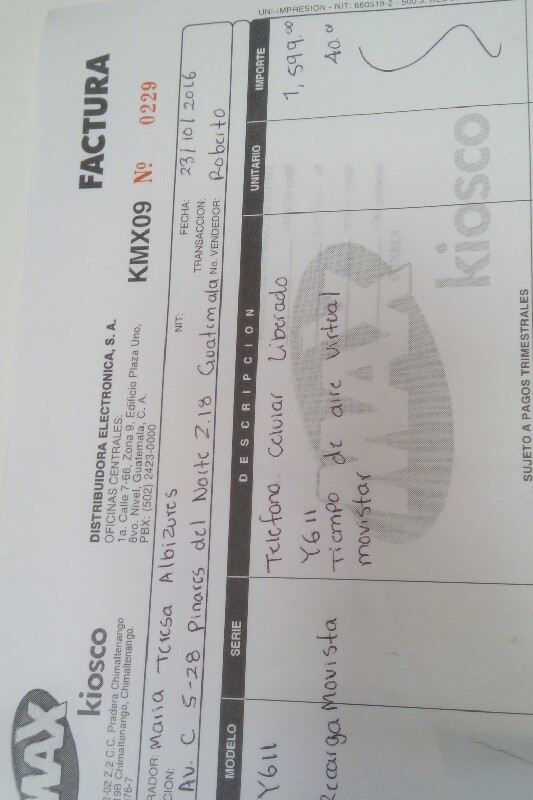 UNI-IMPRESION - NIT: 660519-2
MAX
kiosco
2-02 Z.2 C.C. Pradera Chimaltenango
19B Chimaltenango, Chimaltenango.
76-7
DISTRIBUIDORA ELECTRONICA, S. A.
OFICINAS CENTRALES:
1a. Calle 7-66, Zona 9, Edificio Plaza Uno,
8vo. Nivel, Guatemala, C. A.
PBX: (502) 2423-0000
FACTURA
KMX09 Nº 0229
RADOR: Maria Teresa Albizures
NIT:
FECHA: 23/10/2016
CION: Av. C 5-28 Pinares del Norte Z.18 Guatemala
TRANSACCION:
No. VENDEDOR: Roberto
MODELO SERIE DESCRIPCION UNITARIO IMPORTE
Y611 Telefono Celular Liberado 1,599.00
Y611
Recarga Movista Tiempo de aire virtual 40.00
movistar
MAX
kiosco
SUJETO A PAGOS TRIMESTRALES